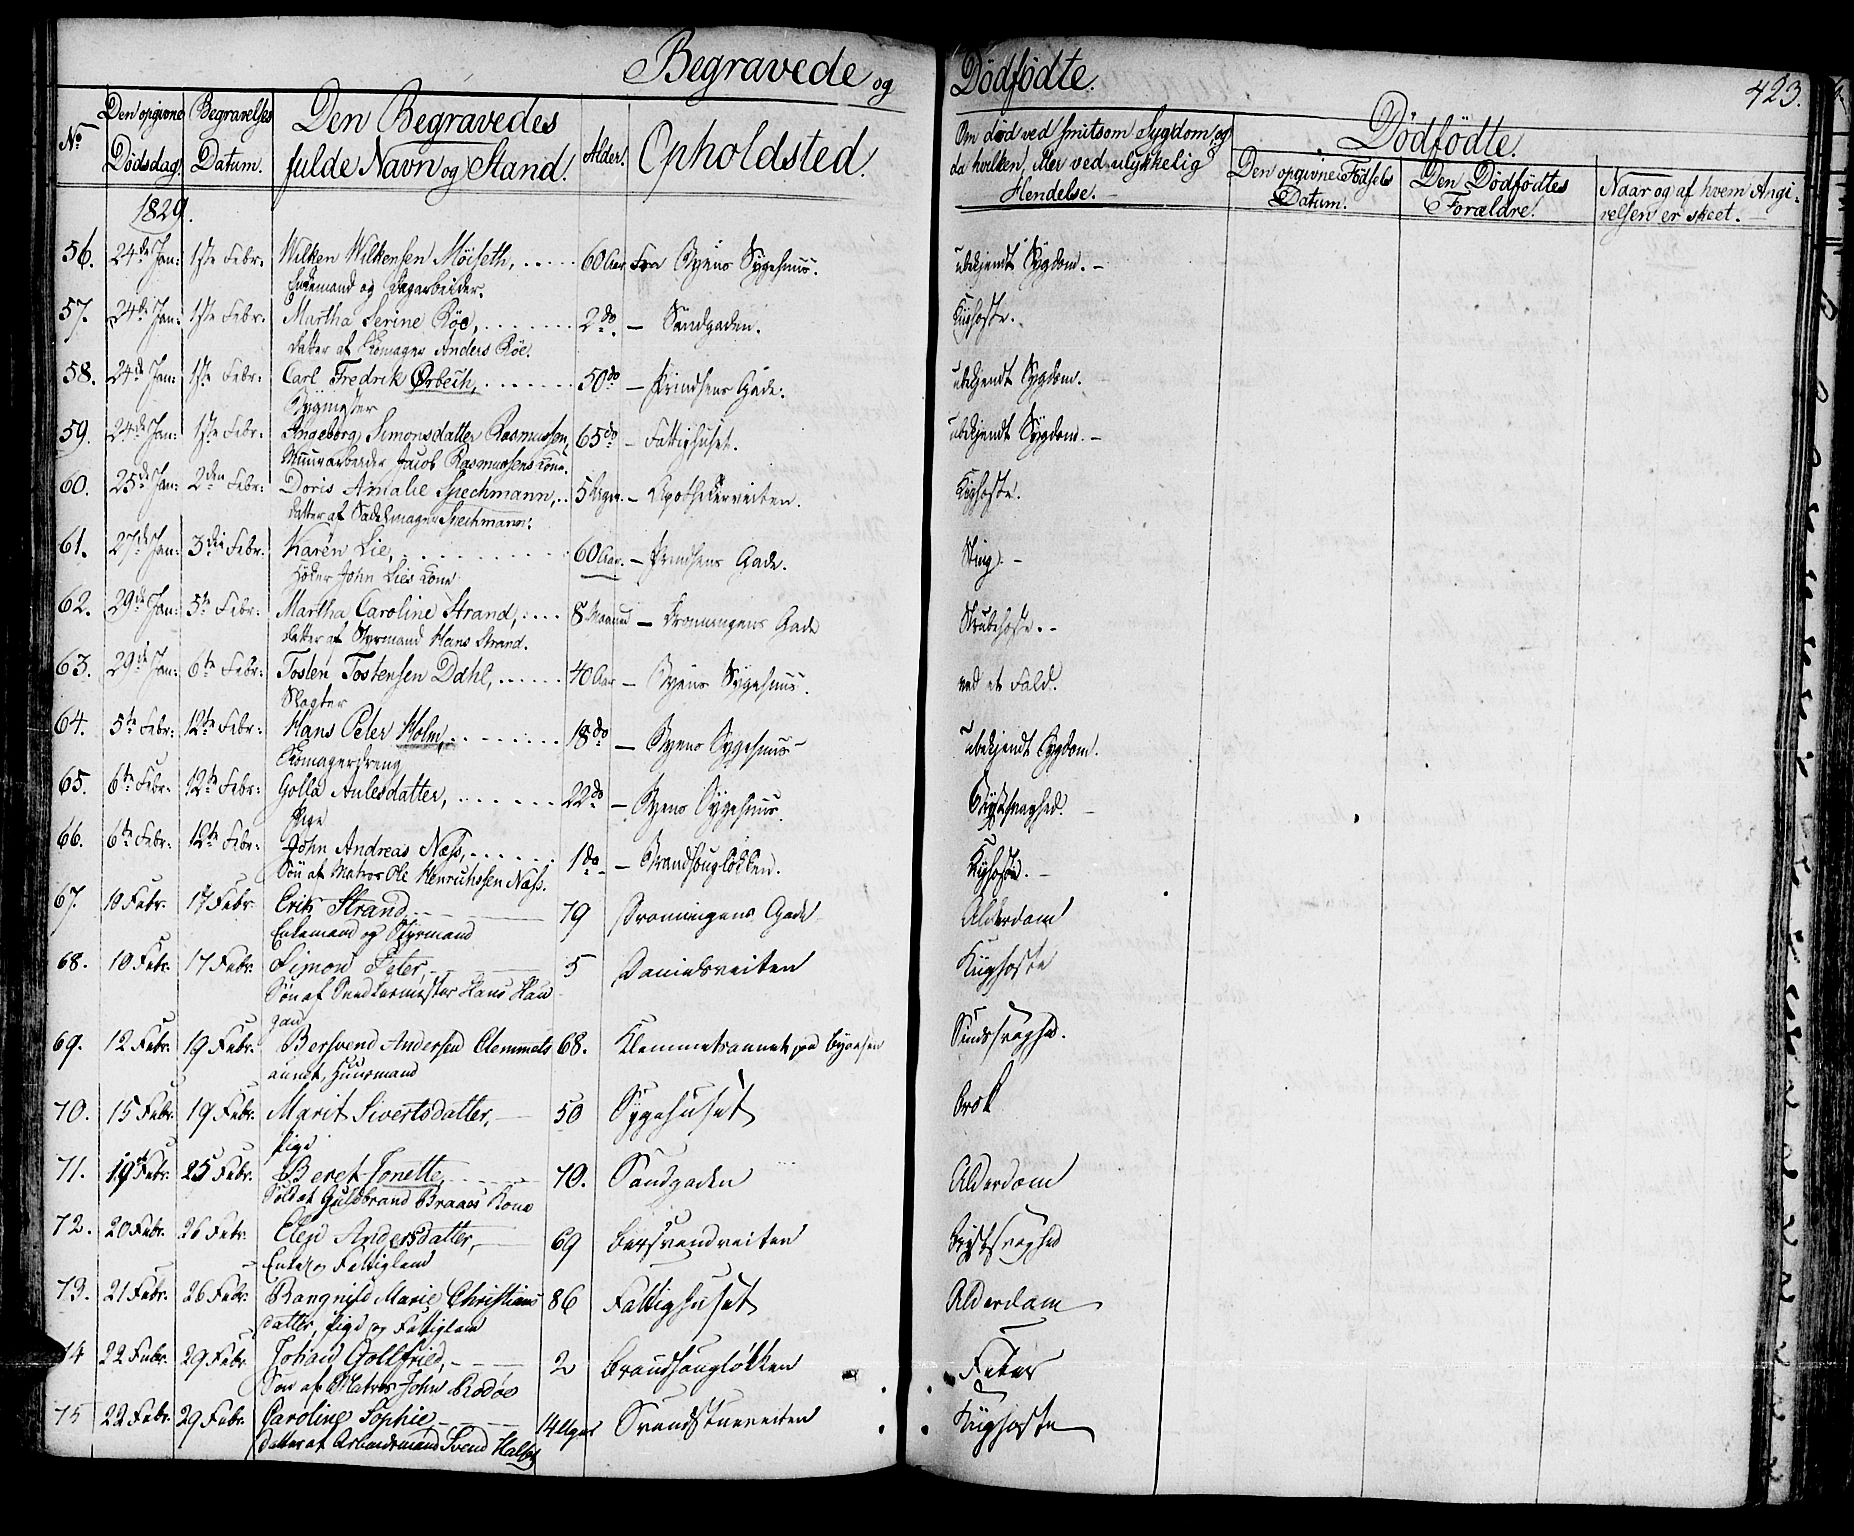 Begravede og Dødfødte.
423.
No
Den opgivne Dødsdag.
Begravelses Datum.
Den Begravedes fulde Navn og Stand.
Alder.
Opholdsted.
Om død ved smitsom Sygdom og da hvilken, eller ved ulykkelig Hendelse.
Dødfødte.
Den opgivne Fødsels Datum.
Den Dødfødtes Forældre.
Naar og af hvem Angivelsen er skeet.
1829.
56. 24de Jan: 1ste Febr: Wilken Wilkensen Möiseth, 60 Aar Fra Byens Sygehuus. ubekjendt Sygdom.
Enkemand og Dagarbeider.
57. 24de Jan: 1ste Febr: Martha Serine Röe, 2 do — Sandgaden. Kighoste.
Datter af Skomager Anders Röe.
58. 24de Jan: 1ste Febr: Carl Fredrik Ørbech, 50 do — Prindsens Gade. ubekjendt Sygdom.
59. 24de Jan: 1ste Febr: Ingeborg Simonsdatter Rasmussen, 65 do — Fattighuset. ubekjendt Sygdom.
Muurarbeider Jacob Rasmussens Kone.
60. 25de Jan: 2den Febr: Doris Amalie Spechmann, 5 Uger — Apothekerveiten. Kighoste.
Datter af Sadelmager Spechmann.
61. 27de Jan: 3die Febr: Karen Lie, 60 Aar — Prindsens Gade. Sting.
Höker John Lies Kone
62. 29de Jan: 5te Febr: Martha Caroline Strand, 8 Maaned — Dronningens Gade Strubehoste.
Datter af Styrmand Hans Strand.
63. 29de Jan: 6te Febr: Tosten Tostensen Dahl, 40 Aar — Byens Sygehuus. ved et Fald.
Slagter
64. 5te Febr: 12te Febr: Hans Peter Holm, 18 do — Byens Sygehuus ubekjendt Sygdom.
Skomagerdreng
65. 6te Febr: 12te Febr: Golla Aulesdatter, 22 do — Byens Sygehuus. Brystsvaghed.
Pige
66. 6te Febr: 12te Febr: John Andreas Næss, 1 do — Brandhougløkken. Kighoste.
Søn af Matros Ole Henrichsen Næss.
67. 10 Febr. 17 Febr Erik Strand 79 Dronningens Gade Alderdom
Enkemand og Styrmand
68. 10 Febr. 17 Febr. Simon Peter, 5 Danielsveiten Kiighoste
Søn af Snedkermester Hans Hau
gan
69. 12 Febr. 19 Febr. Bersvend Andersen Clemmets 68. Klemmetsaunet paa Byaasen Sindssvaghed.
aunet, Huusmand
70. 15 Febr. 19 Febr. Marit Sivertsdatter, 50 Sygehuset Brok
Pige
71. 19 Febr. 25 Febr. Beret Jonette, 70. Sandgaden Alderdom
Soldat Guldbrand Braaes Kone
72. 20 Febr. 26 Febr. Elen Andersdatter, 69 Bersvendveiten Brystsvaghed
Enke og Fattiglem
73. 21 Febr. 26 Febr. Rangnild Marie Christians 86 Fattighuset Alderdom
datter, Pige og Fattiglem
74 22 Febr. 29 Febr. Johan Gottfried, 2 Brandhougløkken Feber
Søn af Matros John Rodøe
75 22 Febr. 29 Febr. Caroline Sophie 14 Uger Svendstueveiten Kiighoste
Datter af Arbeidsmand Svend